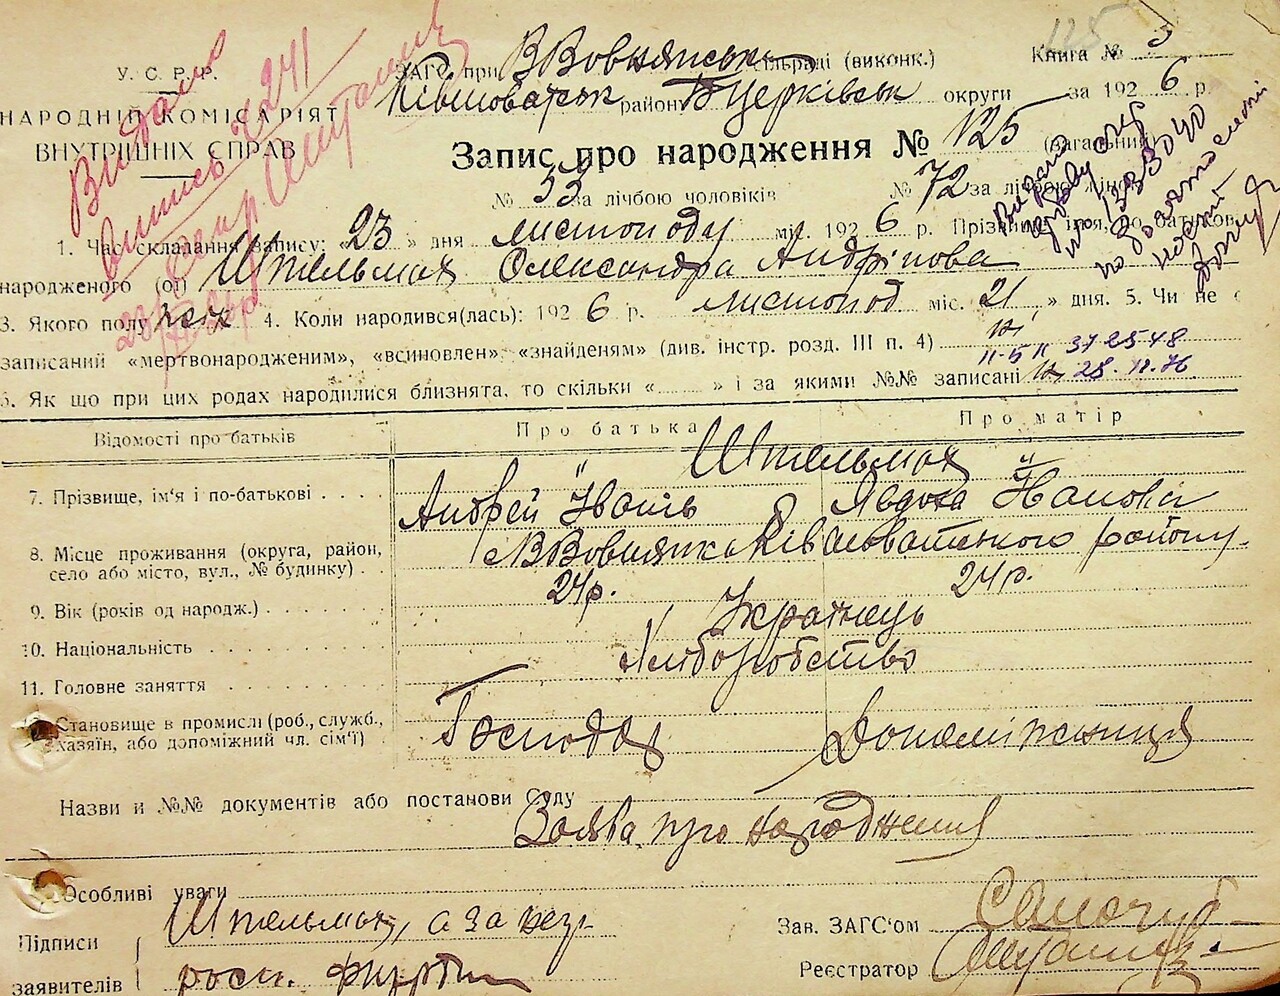 125
У.С.Р.Р.
ЗАГС при ВВовнянськ сільраді (виконк.) Книга № 3
Ківшоватськ району БЦерківськ округи за 1926 р.
НАРОДНІЙ КОМІСАРІЯТ
ВНУТРІШНІХ СПРАВ
Видано
выпись № 241
Запис про народження № 125 (загальний)
№ 53 за лічбою чоловіків № 72 за лічбою жінок
1. Час складання запису: «23» дня листопаду міс. 1926 р. Прізвище, ім'я, по-батькові
народженого (ої) Штельмах Олександра Андріїова
3. Якого полу жін 4. Коли народився(лась): 1926 р. листопад міс. 21 » дня. 5. Чи не є
записаний «мертвонародженим», «всиновлен» «знайденям» (див. інстр. розд. III п. 4) ні
II-БК 3725548
6. Як що при цих родах народилися близнята, то скільки « » і за якими №№ записані ні 28.11.76
Відомості про батьків Про батька Про матір
Штельмах
7. Прізвище, ім'я і по-батькові Андрей Йванів Явдоха Йванова
8. Місце проживання (округа, район, село або місто, вул., № будинку) ВВовнянка Ківшоватського району
9. Вік (років од народж.) 24р. 24р.
10. Національність Українець
11. Головне заняття Хліборобство
Становище в промислі (роб., служб., хазяїн, або допоміжний чл. сім'ї) Господар Допоміжниця
Назви и №№ документів або постанови Суду
Заява про народження
Особливі уваги
Підписи
заявителів
Штельмах, а за нег-
росп.
Зав. ЗАГС'ом
Реєстратор